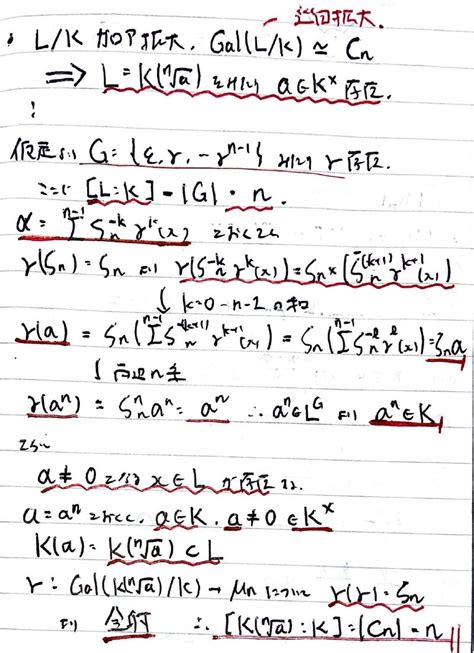 巡回拡大.
L/K ガロア拡大, Gal(L/K) ≃ Cn
⟹ L = K(ⁿ√a) となる a∈K^× 存在.
仮定より G = {e, γ, … γ^{n-1}} なる γ 存在.
ここで [L:K] = |G| = n.
α = Σ^{n-1} ζ_n^{-k} γ^k(x) とおくと
γ(ζ_n) = ζ_n より γ(ζ_n^{-k} γ^k(x)) = ζ_n × (ζ_n^{-(k+1)} γ^{k+1}(x))
↓ k=0 ~ n-1 の和
γ(α) = ζ_n (Σ ζ_n^{-(k+1)} γ^{k+1}(x)) = ζ_n (Σ^{n-1} ζ_n^{-ℓ} γ^ℓ(x)) = ζ_n α
↓ 両辺 n乗
γ(α^n) = ζ_n^n α^n = α^n ∴ α^n ∈ L^G より α^n ∈ K
α ≠ 0 となる x∈L が存在
a = α^n とおくと, a∈K, a ≠ 0 ∈ K^×
K(α) = K(ⁿ√a) ⊂ L
γ : Gal(K(ⁿ√a)/K) → μ_n について γ(γ) = ζ_n
より 全射 ∴ [K(ⁿ√a) : K] = |Cn| = n